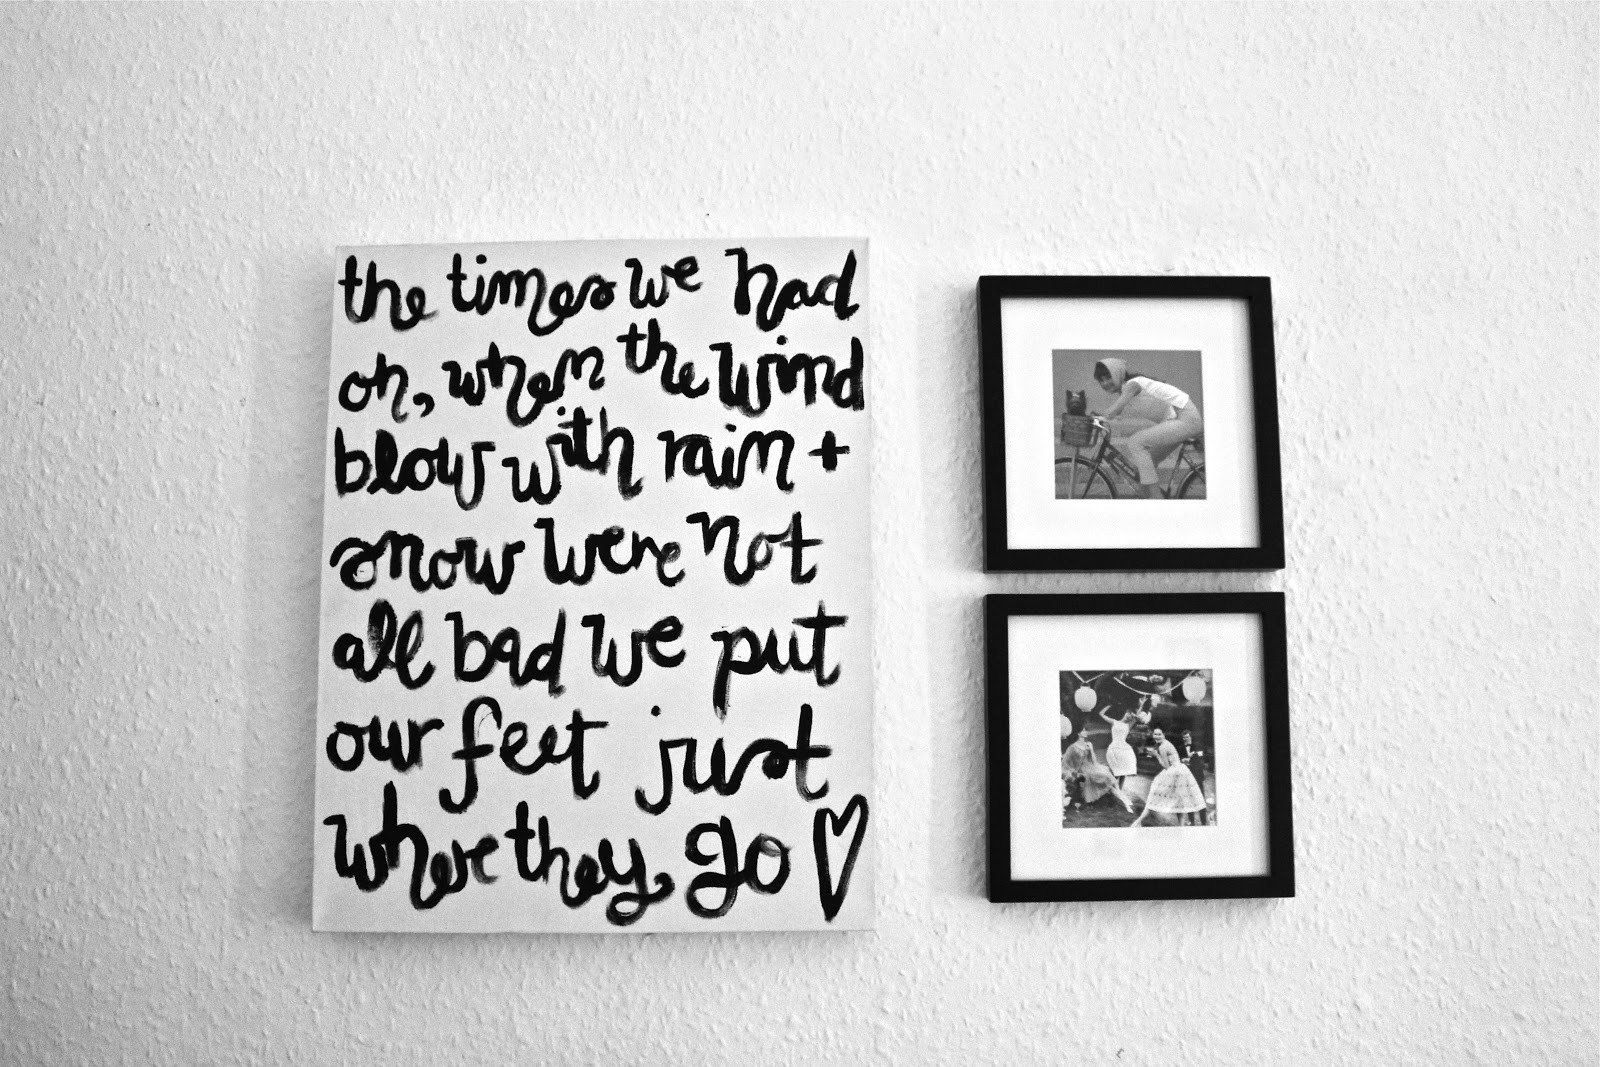 the times we had
oh, when the wind
blow with rain +
snow were not
all bad we put
our feet just
where they go